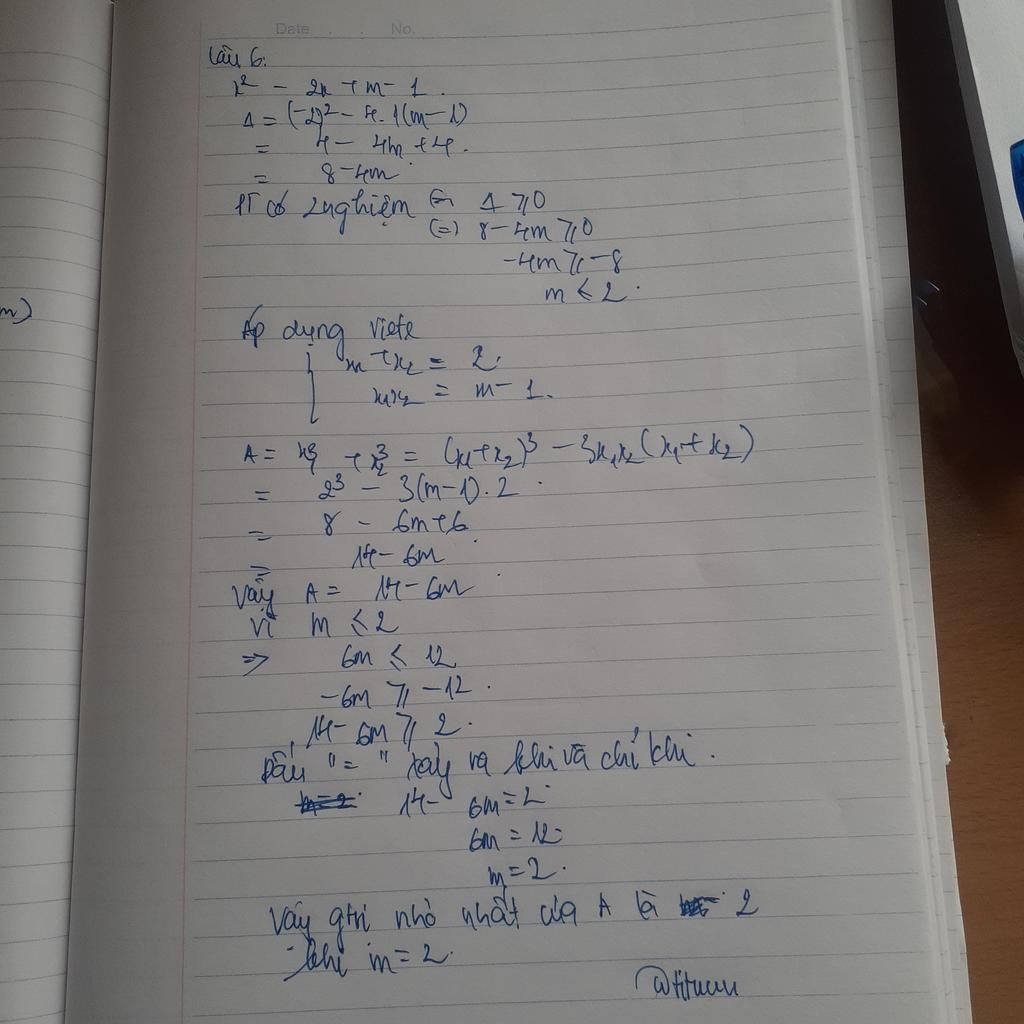 Date No.
Câu 6.
x² - 2x + m - 1.
Δ = (-2)² - 4.1(m-1)
= 4 - 4m + 4.
= 8 - 4m
PT có 2 nghiệm (=) Δ ⩾ 0
(=) 8 - 4m ⩾ 0
-4m ⩾ -8
m ⩽ 2.
m)
Áp dụng viete
x1 + x2 = 2.
x1x2 = m - 1.
A = x1³ + x2³ = (x1+x2)³ - 3x1x2(x1+x2)
= 2³ - 3(m-1).2.
= 8 - 6m + 6
= 14 - 6m
Vậy A = 14 - 6m
vì m ⩽ 2
=> 6m ⩽ 12
-6m ⩾ -12.
14 - 6m ⩾ 2.
Dấu "=" xảy ra khi và chỉ khi.
14 - 6m = 2
6m = 12
m = 2.
Vậy gtri nhỏ nhất của A là 2
khi m = 2.